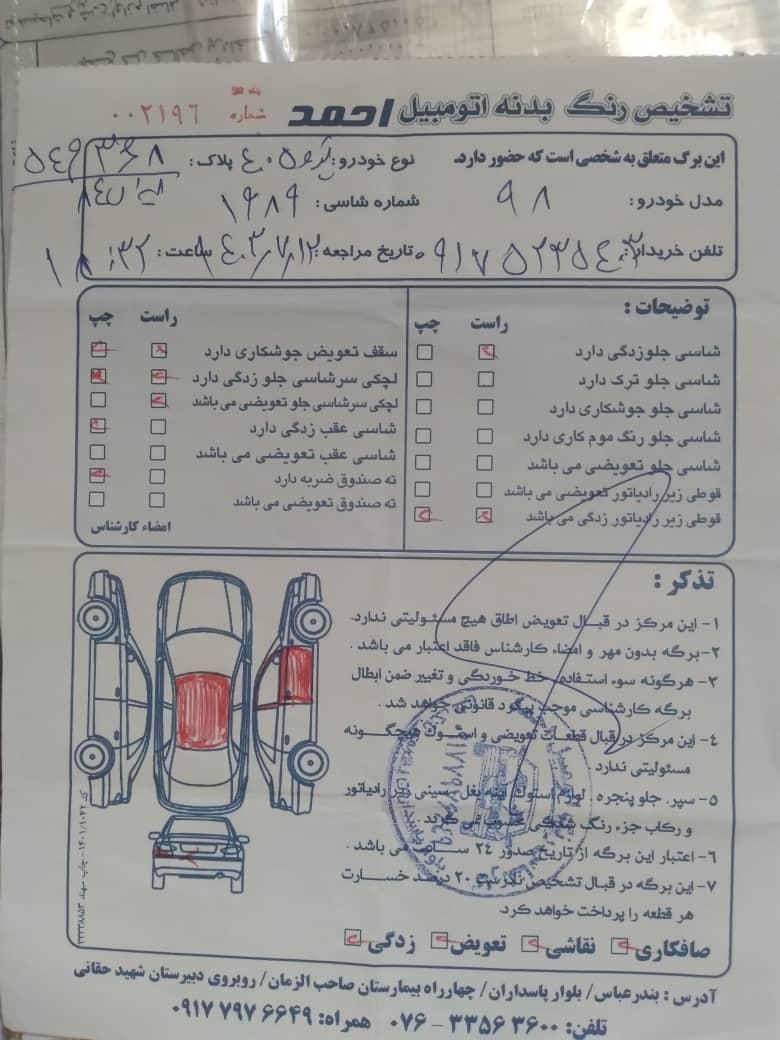 تشخیص رنگ بدنه اتومبیل احمد شماره ۰۰۲۱۹۶
این برگ متعلق به شخصی است که حضور دارد. نوع خودرو: پژو ۴۰۵ پلاک: ۵۴۹۳۶۸
مدل خودرو: ۹۸ شماره شاسی: ۱۹۸۹
تلفن خریدار: تاریخ مراجعه: ۱۴۰۳/۷/۱۲ ساعت: ۱۸:۳۲
توضیحات:
راست چپ
شاسی جلوزدگی دارد
شاسی جلو ترک دارد
شاسی جلو جوشکاری دارد
شاسی جلو رنگ موم کاری دارد
شاسی جلو تعویضی می باشد
قوطی زیر رادیاتور تعویضی می باشد
قوطی زیر رادیاتور زدگی می باشد
راست چپ
سقف تعویض جوشکاری دارد
لچکی سرشاسی جلو زدگی دارد
لچکی سرشاسی جلو تعویضی می باشد
شاسی عقب زدگی دارد
شاسی عقب تعویضی می باشد
ته صندوق ضربه دارد
ته صندوق تعویضی می باشد
امضاء کارشناس
تذکر:
۱- این مرکز در قبال تعویض اطاق هیچ مسئولیتی ندارد.
۲- برگه بدون مهر و امضاء کارشناس فاقد اعتبار می باشد.
۳- هرگونه سوء استفاده، خط خوردگی و تغییر ضمن ابطال
برگه کارشناسی موجب پیگرد قانونی خواهد شد.
۴- این مرکز در قبال قطعات تعویضی و استوک هیچگونه
مسئولیتی ندارد.
۵- سپر، جلو پنجره، لوازم استوک، آینه بغل، سینی زیر رادیاتور
و رکاب جزء رنگ شدگی محسوب نمی گردد.
۶- اعتبار این برگه از تاریخ صدور ۲۴ ساعت می باشد.
۷- این برگه در قبال تشخیص نادرست ۲۰ درصد خسارت
هر قطعه را پرداخت خواهد کرد.
صافکاری نقاشی تعویض زدگی
کد ۱۴۰۱/۱۰۴۲ - چاپ سهند ۲۲۲۳۸۸۵۳
آدرس: بندرعباس/ بلوار پاسداران/ چهارراه بیمارستان صاحب الزمان/ روبروی دبیرستان شهید حقانی
تلفن: ۳۳۵۶۳۶۰۰ - ۰۷۶ همراه: ۰۹۱۷۷۹۷۶۶۴۹